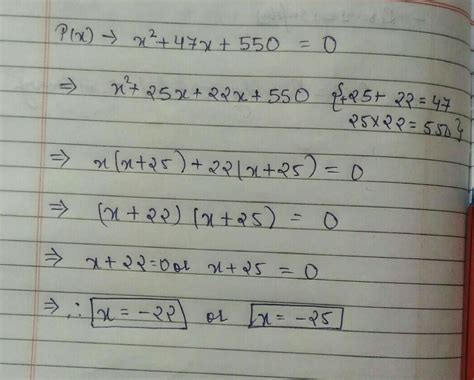 P(x) → x² + 47x + 550 = 0
⇒ x² + 25x + 22x + 550 {+25+ 22 = 47
25×22 = 550}
⇒ x(x+25) + 22(x+25) = 0
⇒ (x+22) (x+25) = 0
⇒ x+22=0 or x+25 = 0
⇒ ∴ x = -22 or x = -25